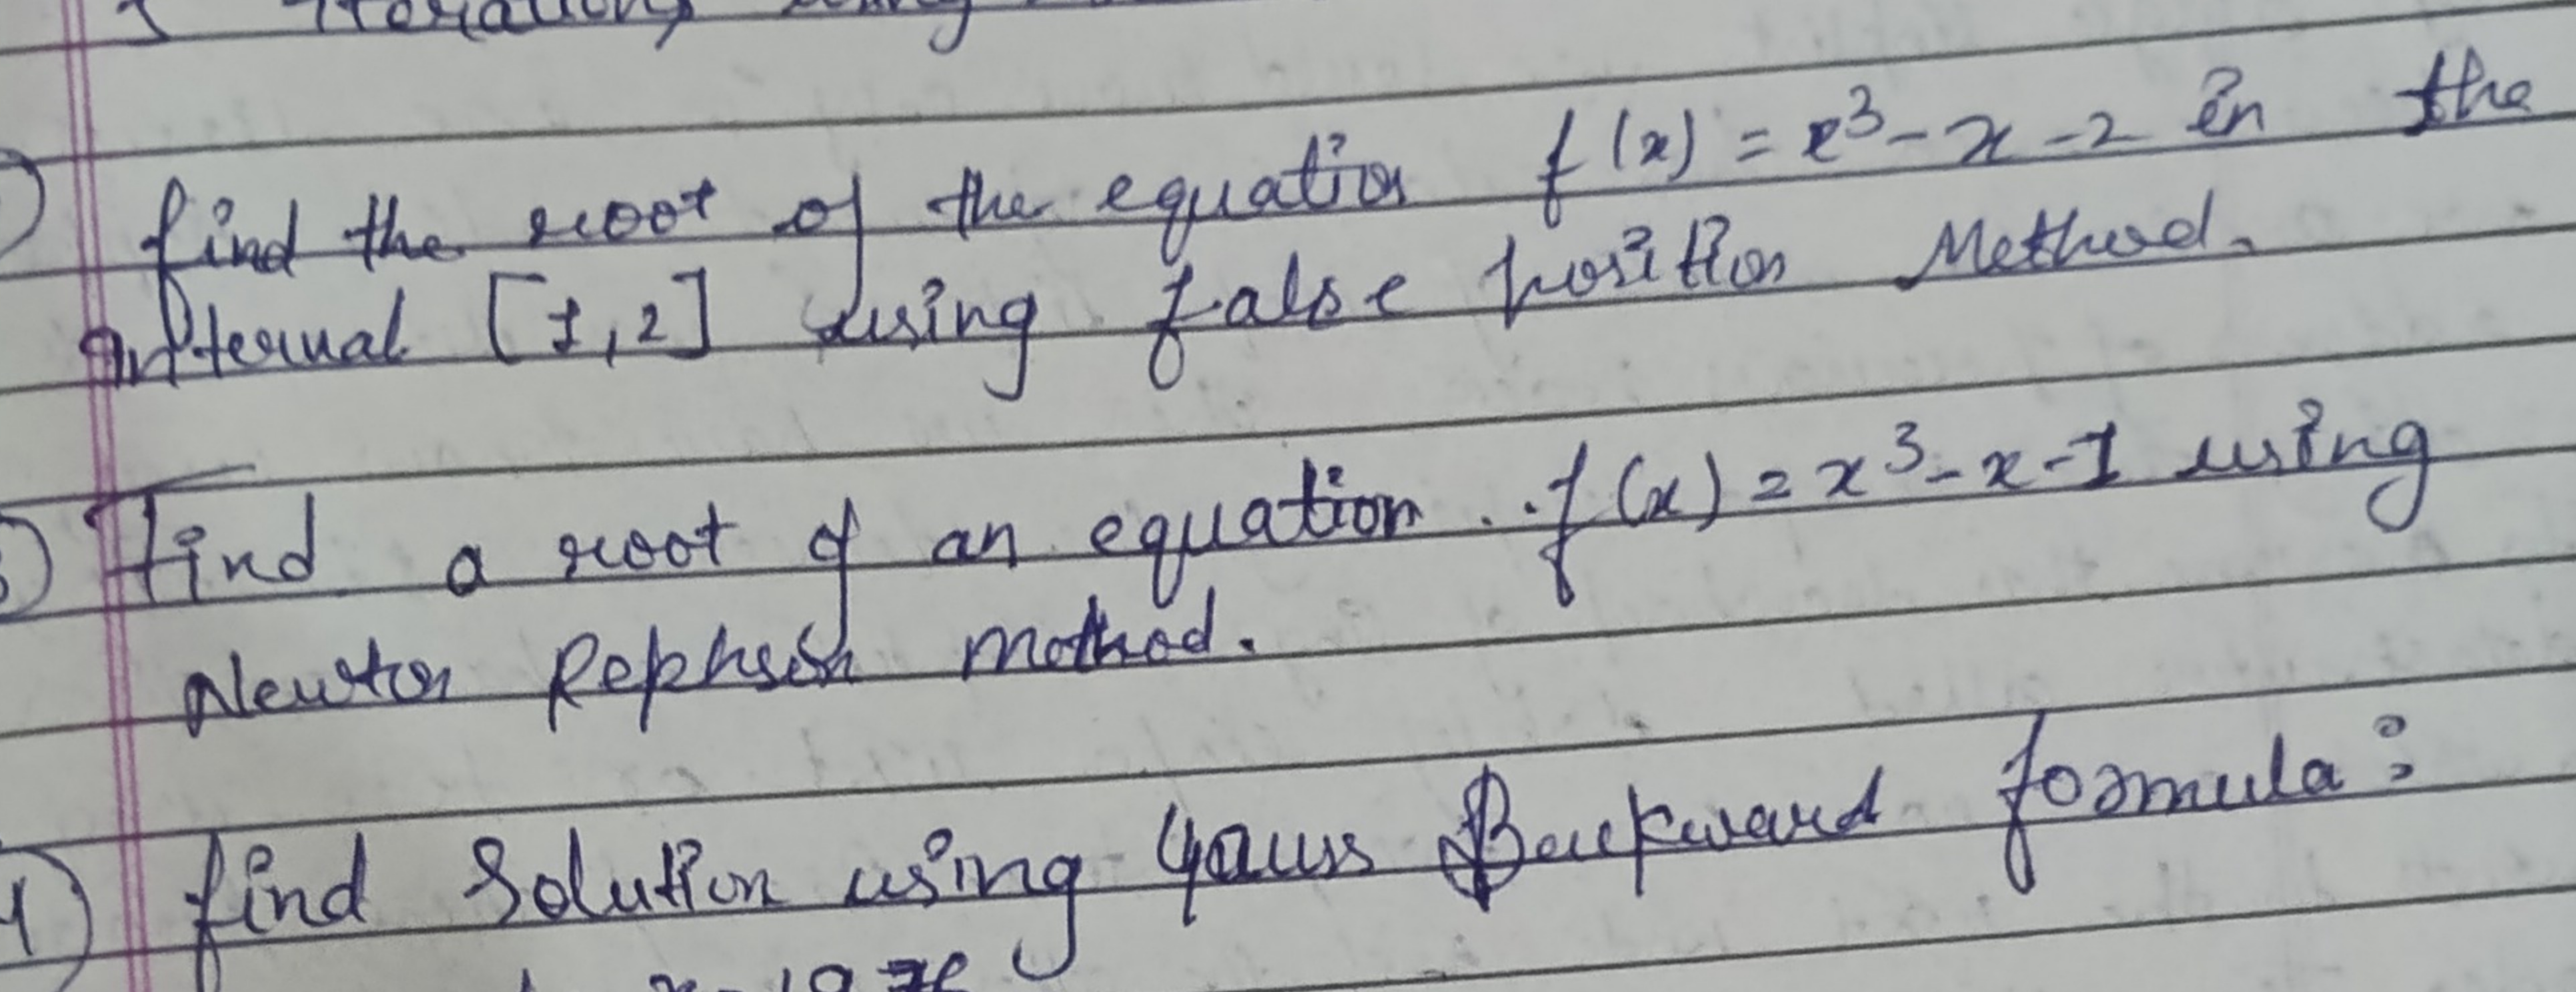 Iterations using
find the root of the equation f(x) = x³ - x - 2 in the
Interval [1,2] using false position Method.
3) Find a root of an equation .. f(x) = x³ - x - 1 using
Newton Rephson method.
4) find Solution using Gauss Backward formula: